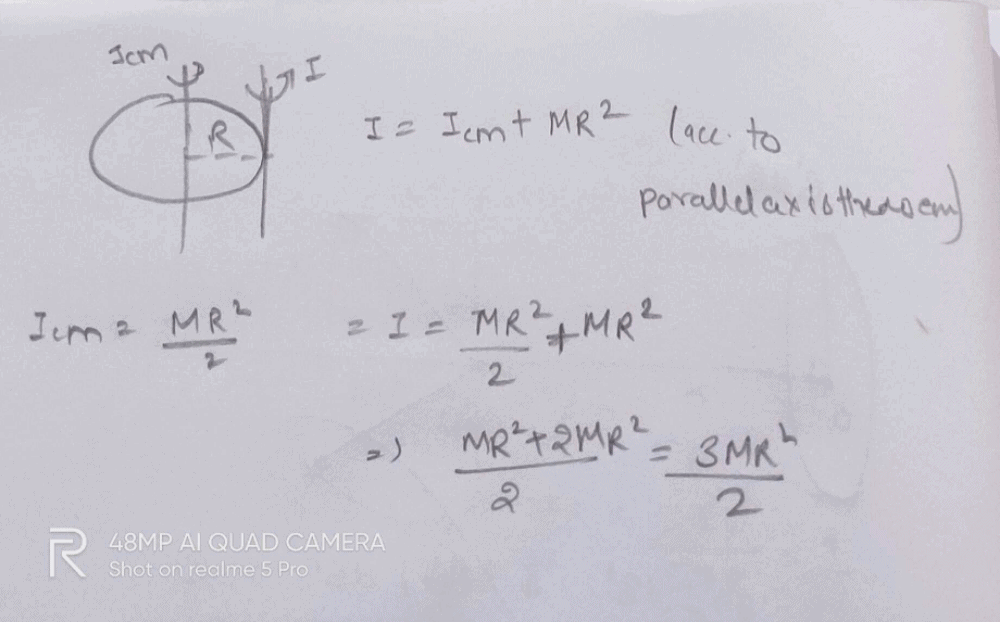 Icm
I
R
I = Icm + MR² (acc. to
parallel axis theorem)
Icm = MR²/2 = I = MR²/2 + MR²
=) MR²+2MR²/2 = 3MR²/2
R 48MP AI QUAD CAMERA
Shot on realme 5 Pro